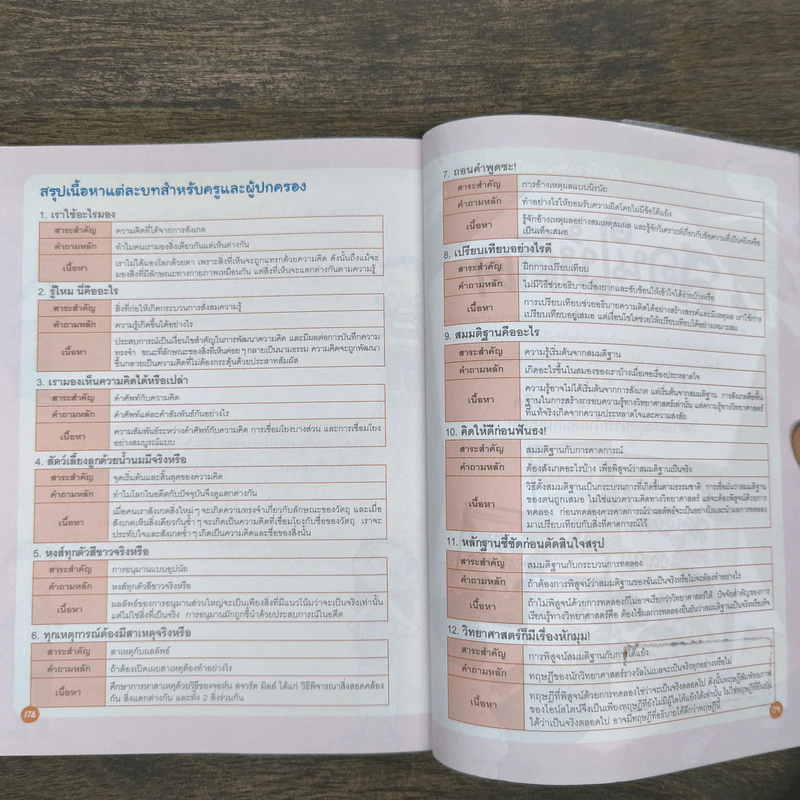 สรุปเนื้อหาแต่ละบทสำหรับครูและผู้ปกครอง
1. เราใช้อะไรมอง
สาระสำคัญ ความคิดที่ได้จากการสังเกต
คำถามหลัก ทำไมคนเรามองสิ่งเดียวกันแต่เห็นต่างกัน
เนื้อหา เราไม่ได้มองโลกด้วยตา เพราะสิ่งที่เห็นจะถูกแทรกด้วยความคิด ดังนั้นถึงแม้จะ
มองสิ่งที่มีลักษณะทางกายภาพเหมือนกัน แต่สิ่งที่เห็นจะแตกต่างกันตามความรู้
2. รู้ไหม นี่คืออะไร
สาระสำคัญ สิ่งที่ก่อให้เกิดกระบวนการสั่งสมความรู้
คำถามหลัก ความรู้เกิดขึ้นได้อย่างไร
เนื้อหา ประสบการณ์เป็นเรื่องใหญ่สำคัญในการพัฒนาความคิด และมีผลต่อการบันทึกความ
ทรงจำ ขณะที่ลักษณะของสิ่งที่เห็นค่อย ๆ กลายเป็นนามธรรม ความคิดจะถูกพัฒนา
ขึ้นกลายเป็นความคิดที่ไม่ต้องกระตุ้นด้วยประสาทสัมผัส
3. เรามองเห็นความคิดได้หรือเปล่า
สาระสำคัญ คำศัพท์กับความคิด
คำถามหลัก คำศัพท์แต่ละคำสัมพันธ์กันอย่างไร
เนื้อหา ความสัมพันธ์ระหว่างคำศัพท์กับความคิด การเชื่อมโยงบางส่วน และการเชื่อมโยง
อย่างสมบูรณ์แบบ
4. สัตว์เลี้ยงลูกด้วยน้ำนมมีจริงหรือ
สาระสำคัญ จุดเริ่มต้นและสิ้นสุดของความคิด
คำถามหลัก ทำไมโลกในอดีตกับปัจจุบันจึงดูแตกต่างกัน
เนื้อหา เมื่อคนเราสังเกตสิ่งใหม่ ๆ จะเกิดความทรงจำเกี่ยวกับลักษณะของวัตถุ และเมื่อ
สังเกตเห็นสิ่งเดียวกันซ้ำ ๆ จะเกิดเป็นความคิดที่เชื่อมโยงกับชื่อของวัตถุ เราจะ
ประทับใจและสังเกตซ้ำ ๆ จะเกิดเป็นความคิดและชื่อของสิ่งนั้น
5. หงส์ทุกตัวสีขาวจริงหรือ
สาระสำคัญ การอนุมานแบบอุปนัย
คำถามหลัก หงส์ทุกตัวสีขาวจริงหรือ
เนื้อหา ผลลัพธ์ของการอนุมานส่วนใหญ่จะเป็นเพียงสิ่งที่มีแนวโน้มว่าจะเป็นจริงเท่านั้น
แต่ไม่ใช่สิ่งที่เป็นจริง การอนุมานมักถูกชี้นำด้วยประสบการณ์ในอดีต
6. ทุกเหตุการณ์ต้องมีสาเหตุจริงหรือ
สาระสำคัญ สาเหตุกับผลลัพธ์
คำถามหลัก ถ้าต้องเปิดเผยสาเหตุต้องทำอย่างไร
เนื้อหา ศึกษาการหาสาเหตุด้วยวิธีของจอห์น สจวร์ต มิลล์ ได้แก่ วิธีพิจารณาสิ่งสอดคล้อง
กัน สิ่งแตกต่างกัน และทั้ง 2 สิ่งร่วมกัน
174
7. ถอนคำพูดซะ!
สาระสำคัญ การอ้างเหตุผลแบบนิรนัย
คำถามหลัก ทำอย่างไรให้ยอมรับความผิดโดยไม่มีข้อโต้แย้ง
เนื้อหา รู้จักอ้างเหตุผลอย่างสมเหตุสมผล และรู้จักวิเคราะห์เกี่ยวกับข้อความที่เป็นจริงหรือ
เป็นเท็จเสมอ
8. เปรียบเทียบอย่างไรดี
สาระสำคัญ ฝึกการเปรียบเทียบ
คำถามหลัก ไม่มีวิธีช่วยอธิบายเรื่องยากและซับซ้อนให้เข้าใจได้ง่ายบ้างหรือ
เนื้อหา การเปรียบเทียบช่วยอธิบายความคิดได้อย่างสร้างสรรค์และมีเหตุผล เราใช้การ
เปรียบเทียบอยู่เสมอ แต่เงื่อนไขใดช่วยให้เปรียบเทียบได้อย่างเหมาะสม
9. สมมติฐานคืออะไร
สาระสำคัญ ความรู้เริ่มต้นจากสมมติฐาน
คำถามหลัก เกิดอะไรขึ้นในสมองของเราบ้างเมื่อเจอเรื่องประหลาดใจ
เนื้อหา ความรู้อาจไม่ได้เริ่มต้นจากการสังเกต แต่เริ่มต้นจากสมมติฐาน การสังเกตคือพื้น
ฐานในการสร้างกรอบความรู้ทางวิทยาศาสตร์เท่านั้น แต่ความรู้ทางวิทยาศาสตร์
ที่แท้จริงเกิดจากความประหลาดใจและความสงสัย
10. คิดให้ดีก่อนฟันธง!
สาระสำคัญ สมมติฐานกับการคาดการณ์
คำถามหลัก ต้องสังเกตอะไรบ้าง เพื่อพิสูจน์ว่าสมมติฐานเป็นจริง
เนื้อหา วิธีตั้งสมมติฐานเป็นกระบวนการที่เกิดขึ้นตามธรรมชาติ การเชื่อมั่นว่าสมมติฐาน
ของตนถูกเสมอ ไม่ใช่แนวความคิดทางวิทยาศาสตร์ แต่จะต้องพิสูจน์ด้วยการ
ทดลอง ก่อนทดลองควรคาดการณ์ว่าผลลัพธ์จะเป็นอย่างไรและนำผลการทดลอง
มาเปรียบเทียบกับสิ่งที่คาดการณ์ไว้
11. หลักฐานชี้ชัดก่อนตัดสินใจสรุป
สาระสำคัญ สมมติฐานกับกระบวนการทดลอง
คำถามหลัก ถ้าต้องการพิสูจน์ว่าสมมติฐานของฉันเป็นจริงหรือไม่จะต้องทำอย่างไร
เนื้อหา ถ้าไม่พิสูจน์ด้วยการทดลองก็ไม่อาจเรียกว่าวิทยาศาสตร์ได้ ปัจจัยสำคัญของการ
เรียนรู้ทางวิทยาศาสตร์คือ ต้องใช้ผลการทดลองยืนยันว่าสมมติฐานเป็นจริงหรือเท็จ
12. วิทยาศาสตร์ก็มีเรื่องหักมุม!
สาระสำคัญ การพิสูจน์สมมติฐานกับการโต้แย้ง
คำถามหลัก ทฤษฎีของนักวิทยาศาสตร์รางวัลโนเบลจะเป็นจริงทุกอย่างหรือไม่
เนื้อหา ทฤษฎีที่พิสูจน์ด้วยการทดลองใช่ว่าจะเป็นจริงตลอดไป ดังนั้นทฤษฎีสัมพัทธภาพ
ของไอน์สไตน์จึงเป็นเพียงทฤษฎีที่ยังไม่มีผู้ใดโต้แย้งได้เท่านั้น ไม่ใช่ทฤษฎีที่ยืนยัน
ได้ว่าเป็นจริงตลอดไป อาจมีทฤษฎีที่อธิบายได้ดีกว่าทฤษฎีนี้